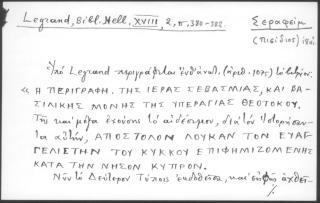 Legrand, Bibl. Hell. XVIII, 2, π, 380-382.
Σεραφείμ
(Πισίδιος) 1801
Ὑπὸ Legrand περιγράφεται (ἀριθ. 1075) τὸ βιβλίον
« Η ΠΕΡΙΓΡΑΦΗ ΤΗΣ ΙΕΡΑΣ ΣΕΒΑΣΜΙΑΣ, ΚΑΙ ΒΑ-
ΣΙΛΙΚΗΣ ΜΟΝΗΣ ΤΗΣ ΥΠΕΡΑΓΙΑΣ ΘΕΟΤΟΚΟΥ.
Τῆς καὶ μέγα ἐχούσης τὸ αἰδέσιμον, διὰ τὸν ἱστορήσαν-
τα αὐτήν, ΑΠΟΣΤΟΛΟΝ ΛΟΥΚΑΝ ΤΟΝ ΕΥΑΓ-
ΓΕΛΙΣΤΗΝ ΤΟΥ ΚΥΚΚΟΥ ΕΠΙΦΗΜΙΖΟΜΕΝΗΣ
ΚΑΤΑ ΤΗΝ ΝΗΣΟΝ ΚΥΠΡΟΝ.
Νῦν τὸ Δεύτερον Τύποις ἐκδοθεῖσα, καὶ